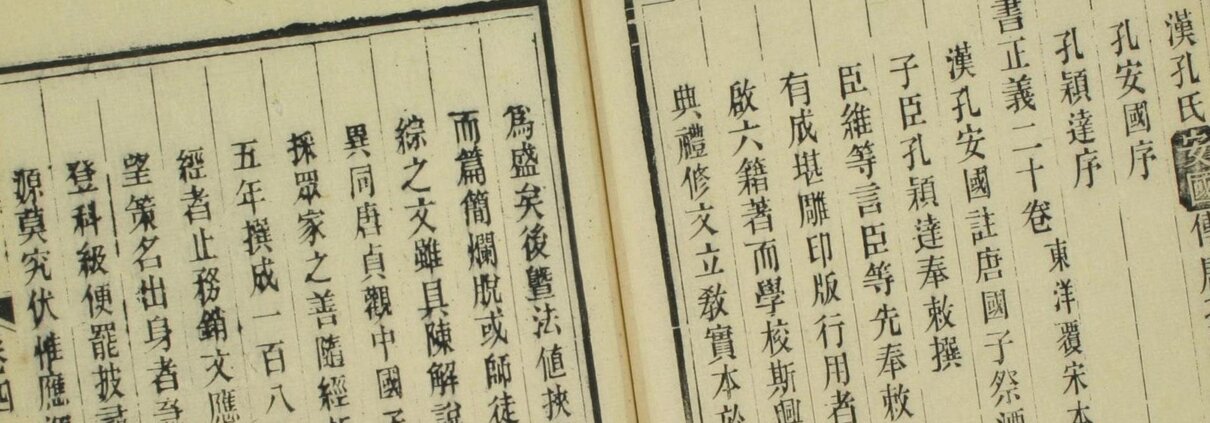 漢孔氏安國傳
孔安國序
孔穎達序
書正義二十卷 東洋覆宋本
漢孔安國註唐國子祭酒
子臣孔穎達奉敕撰
臣維等言臣等先奉敕
有成堪雕印版行用者
啟六籍著而學校斯興
典禮修文立敎實本於
爲盛矣後曁法値挾
而篇簡爛脫或師徒
綜之文雖具陳解說
異同唐貞觀中國子
採眾家之善隨經
五年撰成一百八
經者止務銷文應
望策名出身者
登科級便罷披尋
源莫究伏惟應